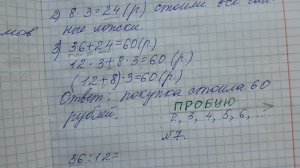 2) 8·3=24 (р.) стоили все чай-
мов ные ложки.
3) 36+24=60(р.)
12·3+8·3=60(р.)
(12+8)·3=60(р.)
Ответ: покупка стоила 60
рублей. ПРОБУЮ
2, 3, 4, 5, 6, ...
№7.
36:12=